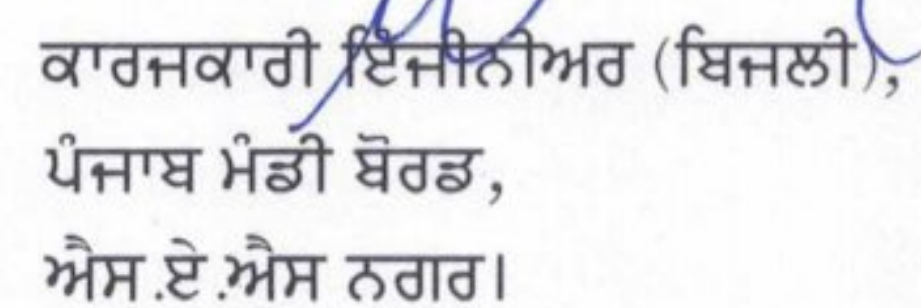 ਕਾਰਜਕਾਰੀ ਇੰਜੀਨੀਅਰ (ਬਿਜਲੀ),
ਪੰਜਾਬ ਮੰਡੀ ਬੋਰਡ,
ਐਸ.ਏ.ਐਸ ਨਗਰ।